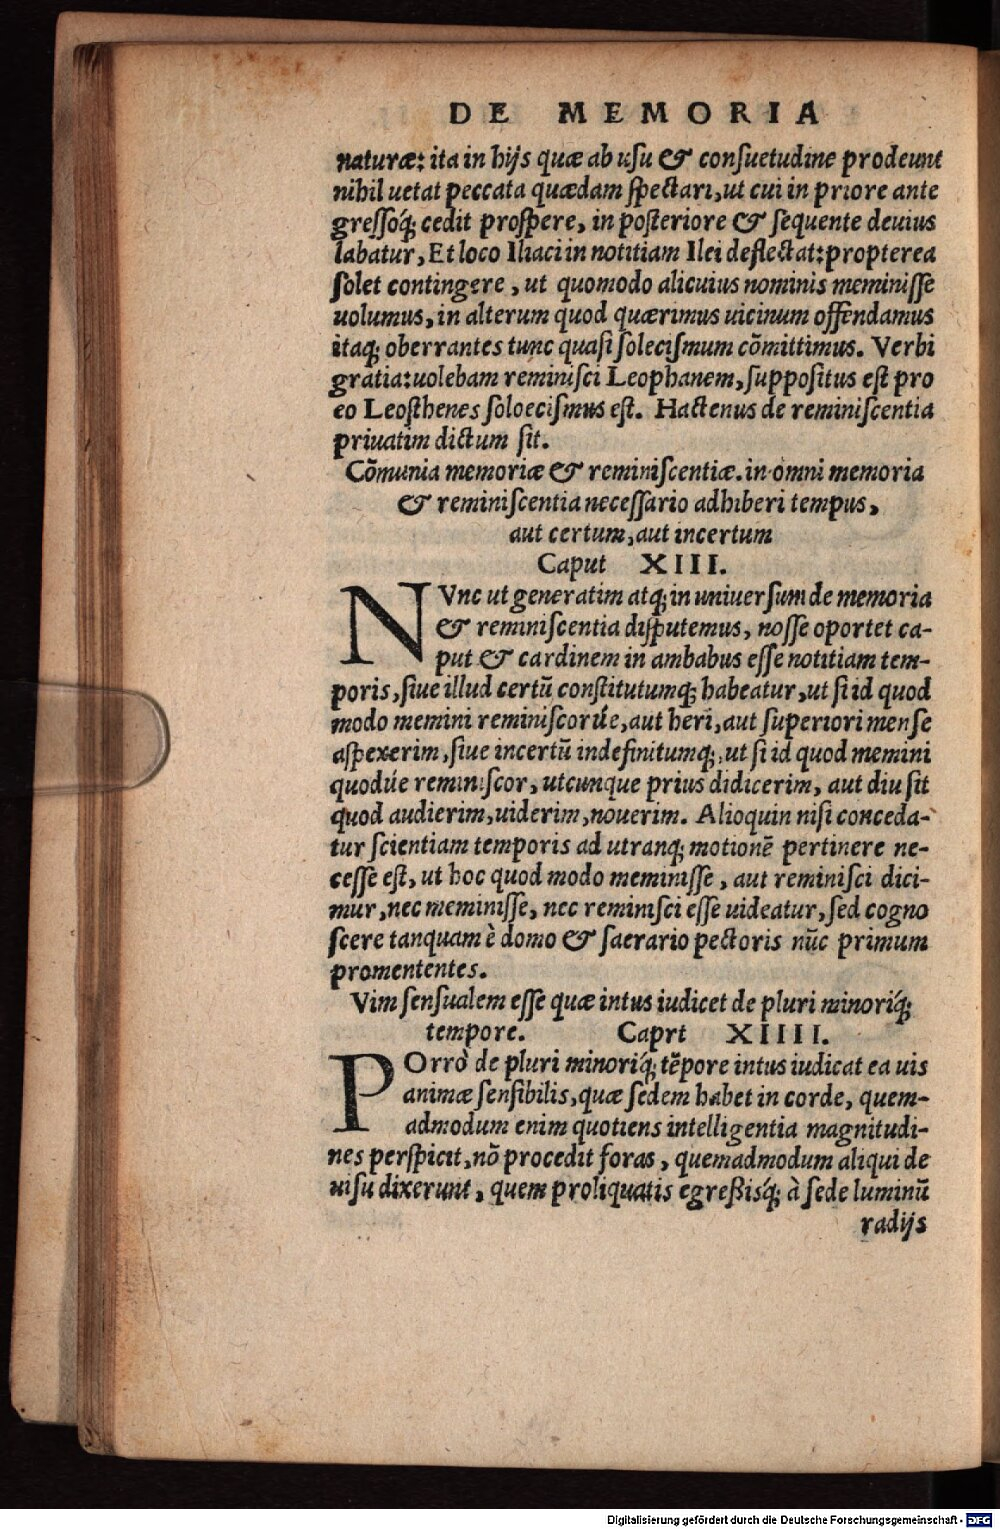 DE MEMORIA
naturæ: ita in hijs quæ ab usu & consuetudine prodeunt
nihil uetat peccata quædam spectari, ut cui in priore ante
gressoq́; cedit prospere, in posteriore & sequente deuius
labatur, Et loco Iliaci in notitiam Ilei deflectat: propterea
solet contingere, ut quomodo alicuius nominis meminisse
uolumus, in alterum quod quærimus uicinum offendamus
itaq; oberrantes tunc quasi solecismum cōmittimus. Verbi
gratia: uolebam reminisci Leophanem, suppositus est pro
eo Leosthenes soloecismus est. Hactenus de reminiscentia
priuatim dictum sit.
Cōmunia memoriæ & reminiscentiæ. in omni memoria
& reminiscentia necessario adhiberi tempus,
aut certum, aut incertum
Caput XIII.
NVnc ut generatim atq; in uniuersum de memoria
& reminiscentia disputemus, nosse oportet ca-
put & cardinem in ambabus esse notitiam tem-
poris, siue illud certū constitutumq; habeatur, ut si id quod
modo memini reminiscorúe, aut heri, aut superiori mense
aspexerim, siue incertū indefinitumq;, ut si id quod memini
quodúe reminiscor, utcunque prius didicerim, aut diu sit
quod audierim, uiderim, nouerim. Alioquin nisi conceda-
tur scientiam temporis ad utranq; motionē pertinere ne-
cesse est, ut hoc quod modo meminisse, aut reminisci dici-
mur, nec meminisse, nec reminisci esse uideatur, sed cogno
scere tanquam è domo & saerario pectoris nūc primum
promententes.
Vim sensualem esse quæ intus iudicet de pluri minoriq́;
tempore. Caprt XIIII.
POrrò de pluri minoriq́; tēpore intus iudicat ea uis
animæ sensibilis, quæ sedem habet in corde, quem-
admodum enim quotiens intelligentia magnitudi-
nes perspicit, nō procedit foras, quemadmodum aliqui de
uisu dixerunt, quem proliquatis egreßisq́; à sede luminū
radijs
Digitalisierung gefördert durch die Deutsche Forschungsgemeinschaft - DFG